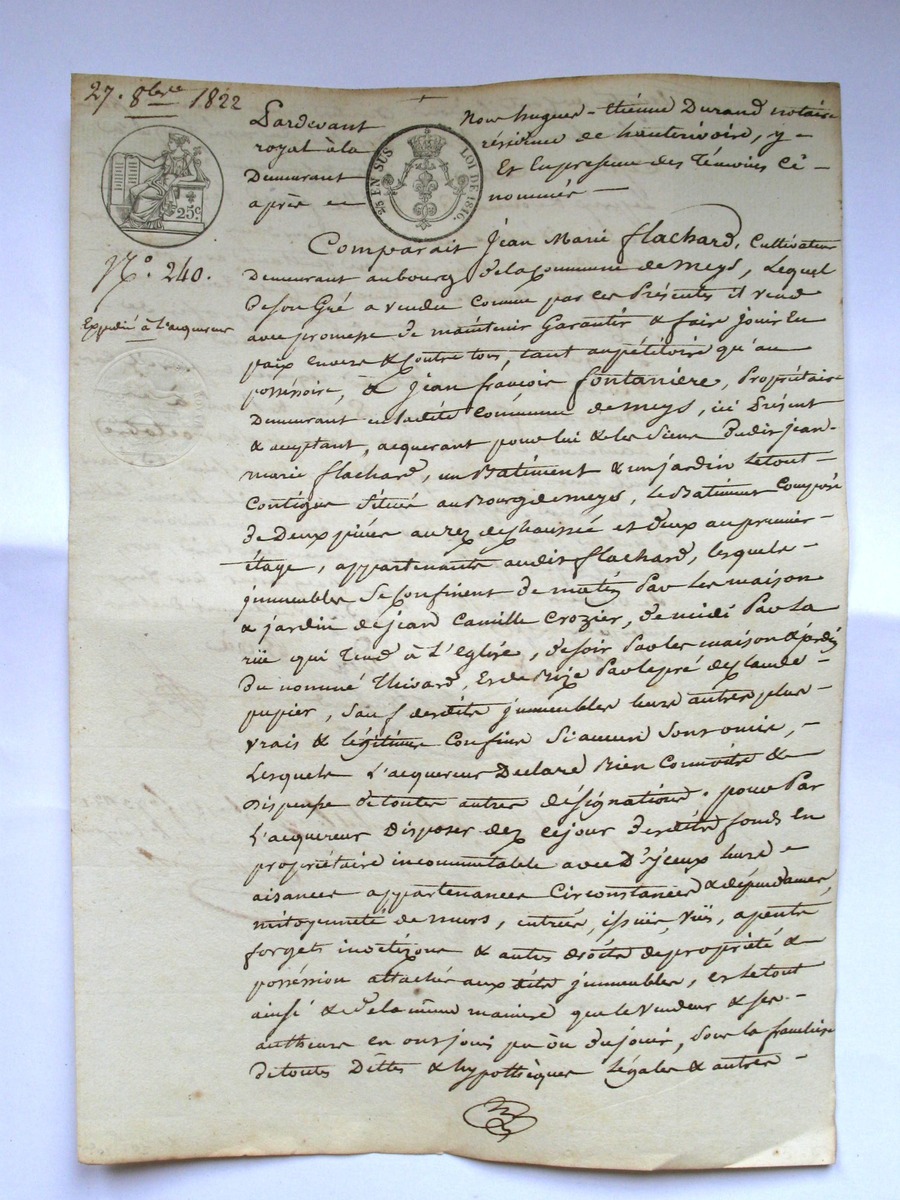 27. 8bre 1822
Pardevant Nous hugues - Etienne Durand notaire
royal à la résidence de hauterivoire, y -
Demeurant Et En presence des Témoins ci -
après nommés -
25 EN SUS LOI DE 1816.
25c.
N.° 240.
Expédié à l'acquereur
Comparait Jean Marie flachard, Cultivateur
Demeurant au bourg de la Commune de meys, Lequel
de son Gré a vendu Comme par ces Présentes il vend
avec promesse de maintenir Garantir & faire jouir En
paix envers & Contre tous, tant au pétitoire qu'au
possessoire, à Jean françois fontanière, Propriétaire
Demeurant en ladite Commune de meys, ici Présent
& acceptant, acquerant pour lui & les siens dudit jean-
marie flachard, un Batiment & un jardin le tout -
Contigus Situés au Bourg de meys, le Batiment Composé
de Deux pièces au rez de Chaussée et deux au premier -
étage, appartenants audit flachard, lesquels -
jmmeubles se Confinent de matin Par les maison
& jardin de jean Camille Crozier, de midi Par la
rüe qui Tend à L'Eglise, de soir Par les maison & jardin
du nommé Thivard, Et de Bize Par le pré de Claude -
pupier, Sauf desdits jmmeubles leurs autres plus -
vrais & légitimes Confins Si aucun Sont omis, -
Lesquels L'acquereur Declare Bien Connoitre &
dispense de toutes autres désignations. pour Par
L'acquereur disposer dez ce jour desdits fonds En
propriétaire incommutable avec D'jceux leurs -
aisances appartenances Circonstances & dépendances,
mitoyenneté de murs, entrées, issües, vües,
forgets & autres droits de propriété &
possession attachés aux dits jmmeubles, et le tout
ainsi & de la même manière que le vendeur & ses -
autheurs en ont joui pu ou du jouir, Sous la franchise
de toutes Dettes & hypothèques légales & autres -